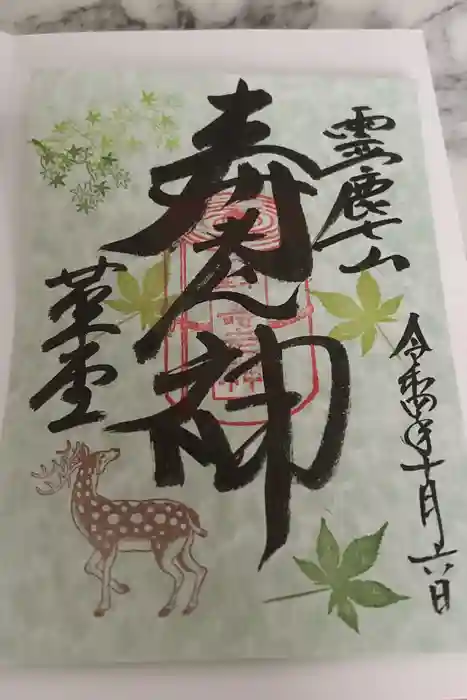 霊麀山
寿老神
革堂
令和四年十月十六日